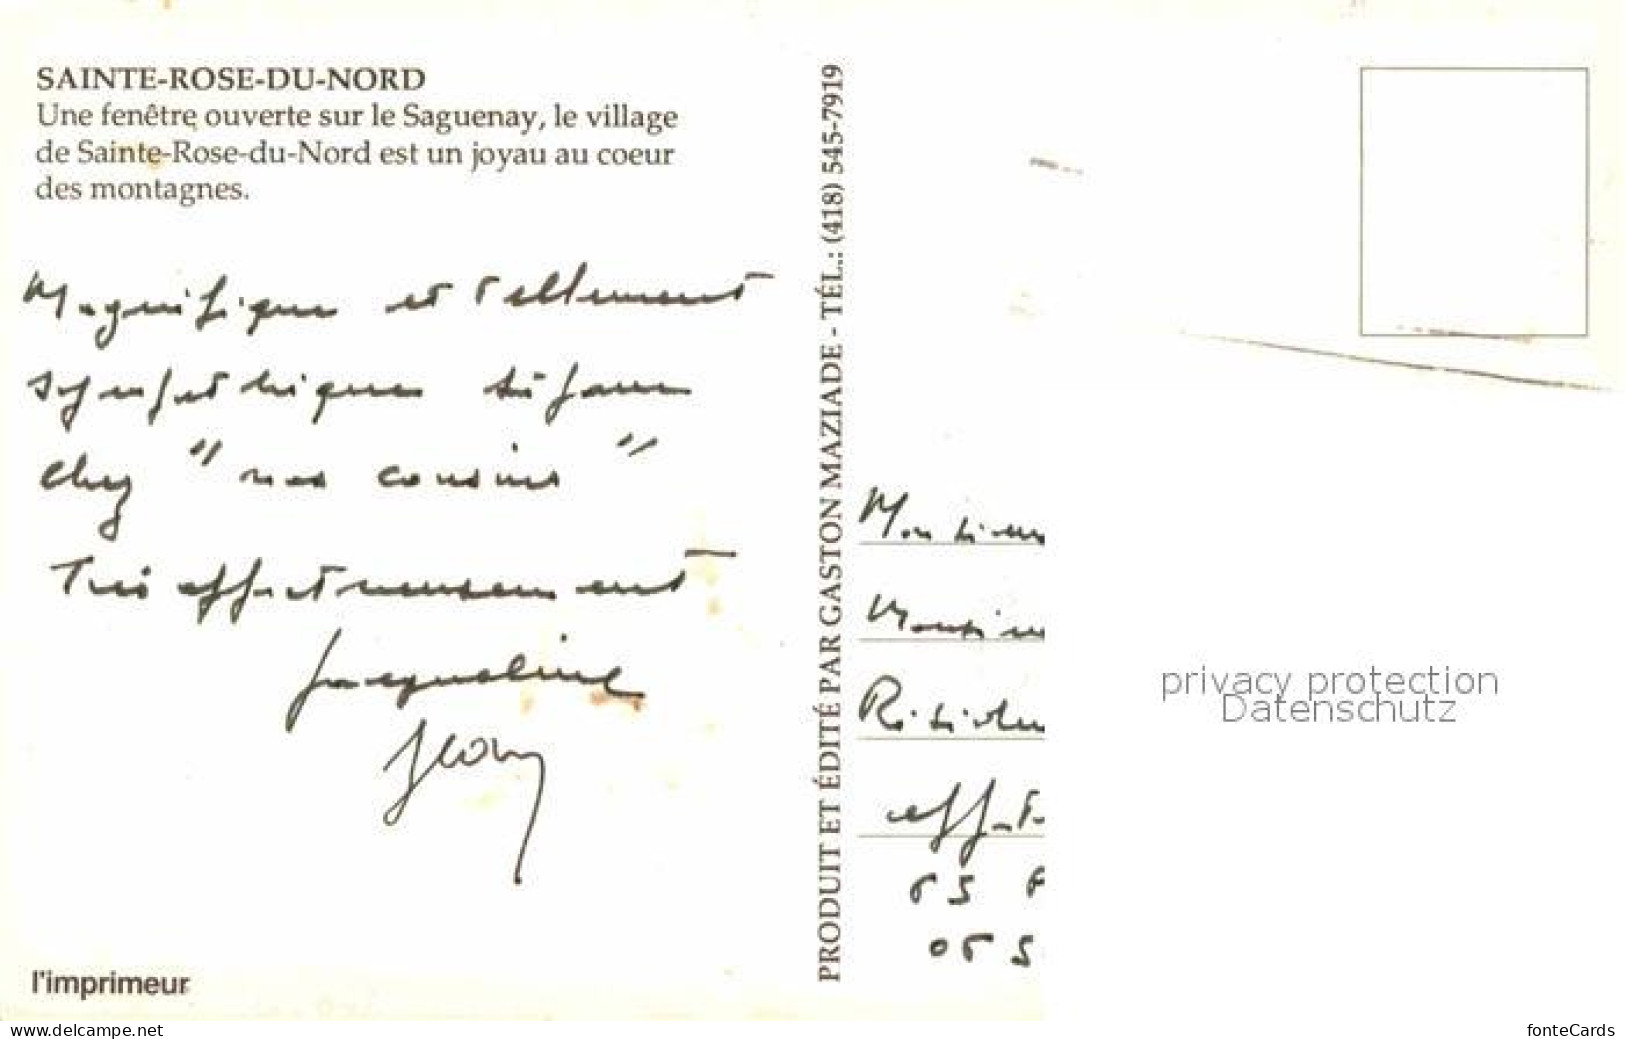 SAINTE-ROSE-DU-NORD
Une fenêtre ouverte sur le Saguenay, le village
de Sainte-Rose-du-Nord est un joyau au coeur
des montagnes.
Magnifique et tellement
sympathique séjour
chez "nos cousins"
Très affectueusement
Jacqueline
l'imprimeur
PRODUIT ET ÉDITÉ PAR GASTON MAZIADE - TÉL.: (418) 545-7919
Monsieur
privacy protection
Datenschutz
www.delcampe.net
fonteCards